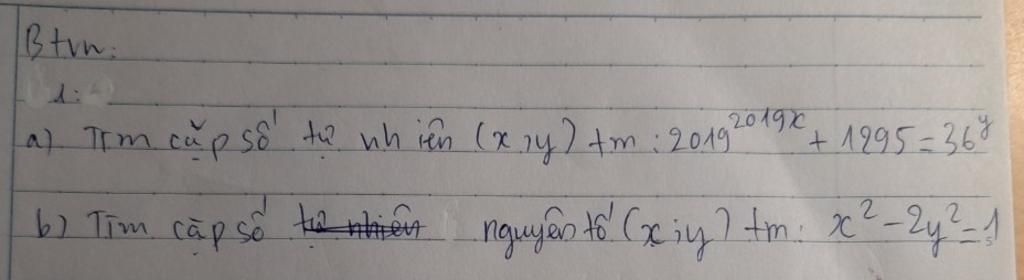 Btvn:
1:
a) Tìm cặp số tự nhiên (x;y) tm: 2019^2019x + 1295 = 36^y
b) Tìm cặp số tự nhiên nguyên tố (x;y) tm: x² - 2y² = 1